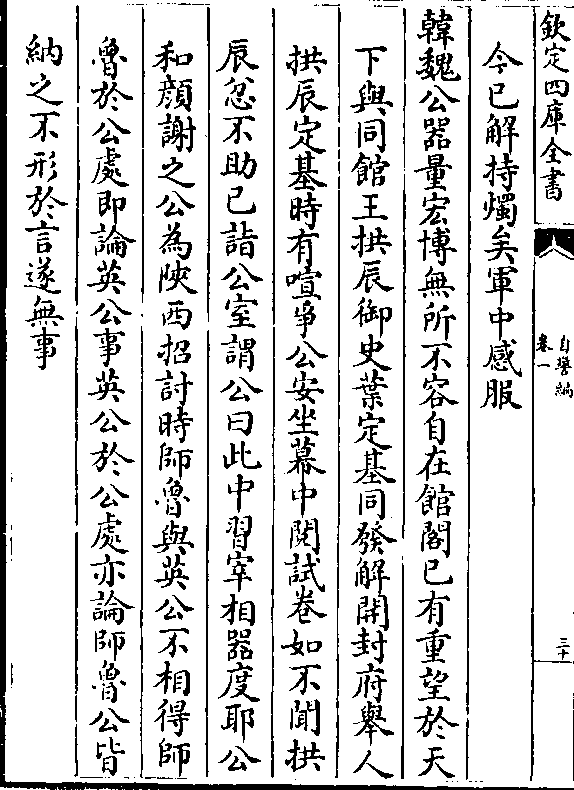 欽定四庫全書
自警編
卷一
三十
今已解持燭矣軍中感服
韓魏公器量宏博無所不容自在館閣已有重望於天
下與同館王拱辰御史葉定基同發解開封府舉人
拱辰定基時有喧爭公安坐幕中閱試卷如不聞拱
辰忿不助已詣公室謂公曰此中習宰相器度耶公
和顔謝之公為陜西招討時師魯與英公不相得師
魯於公處即論英公事英公於公處亦論師魯公皆
納之不形於言遂無事